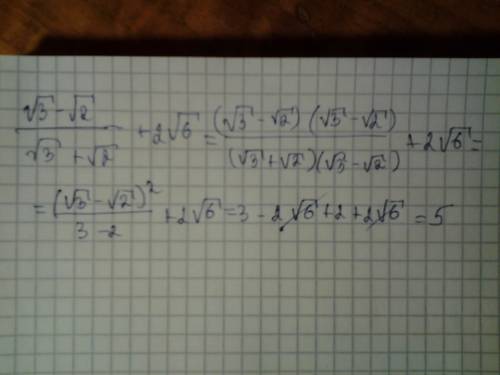 (√3 - √2)/(√3 + √2) + 2√6 = ((√3 - √2)(√3 - √2))/((√3 + √2)(√3 - √2)) + 2√6 =
= (√3 - √2)²/(3 - 2) + 2√6 = 3 - 2√6 + 2 + 2√6 = 5